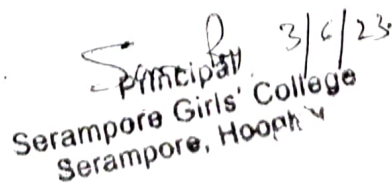 3/6/23.
Principal
Serampore Girls' College
Serampore, Hooghly